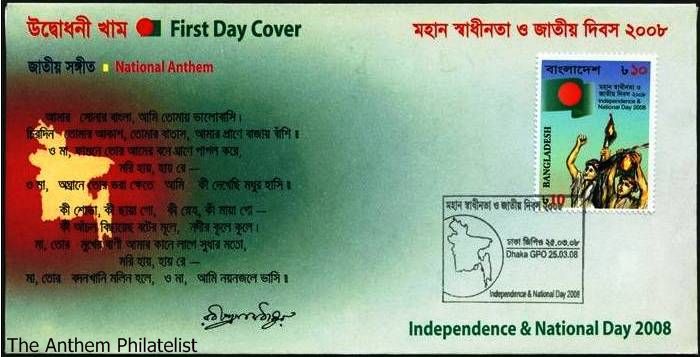 উদ্বোধনী খাম First Day Cover
মহান স্বাধীনতা ও জাতীয় দিবস ২০০৮
জাতীয় সঙ্গীত National Anthem
আমার সোনার বাংলা, আমি তোমায় ভালোবাসি।
চিরদিন তোমার আকাশ, তোমার বাতাস, আমার প্রাণে বাজায় বাঁশি॥
ও মা, ফাগুনে তোর আমের বনে ঘ্রাণে পাগল করে,
মরি হায়, হায় রে—
ও মা, অঘ্রানে তোর ভরা ক্ষেতে আমি কী দেখেছি মধুর হাসি॥
কী শোভা, কী ছায়া গো, কী স্নেহ, কী মায়া গো—
কী আঁচল বিছায়েছ বটের মূলে, নদীর কূলে কূলে।
মা, তোর মুখের বাণী আমার কানে লাগে সুধার মতো,
মরি হায়, হায় রে—
মা, তোর বদনখানি মলিন হলে, ও মা, আমি নয়নজলে ভাসি॥
বাংলাদেশ ৳১০
মহান স্বাধীনতা ও
জাতীয় দিবস ২০০৮
Independence &
National Day 2008
BANGLADESH
৳10
মহান স্বাধীনতা ও জাতীয় দিবস ২০০৮
ঢাকা জিপিও ২৫.০৩.০৮
Dhaka GPO 25.03.08
Independence & National Day 2008
Independence & National Day 2008
The Anthem Philatelist